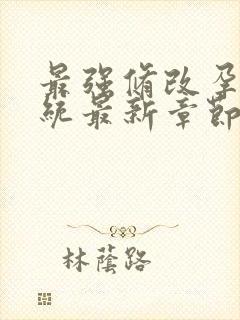 最强脩改孕
統最新章節
林蔭路